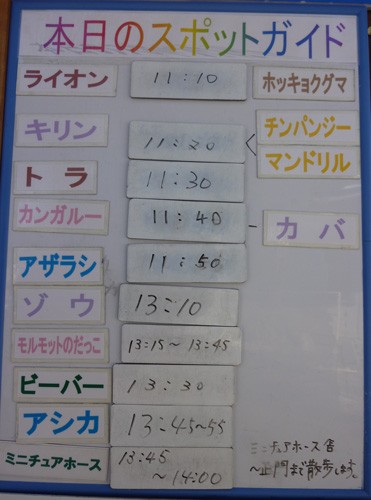 本日のスポットガイド
ライオン 11:10 ホッキョクグマ
キリン 11:20 チンパンジー
マンドリル
トラ 11:30
カンガルー 11:40 カバ
アザラシ 11:50
ゾウ 13:10
モルモットのだっこ 13:15～13:45
ビーバー 13:30
アシカ 13:45~55
ミニチュアホース 13:45
～14:00
ミニチュアホース舎
～正門まで散歩します。